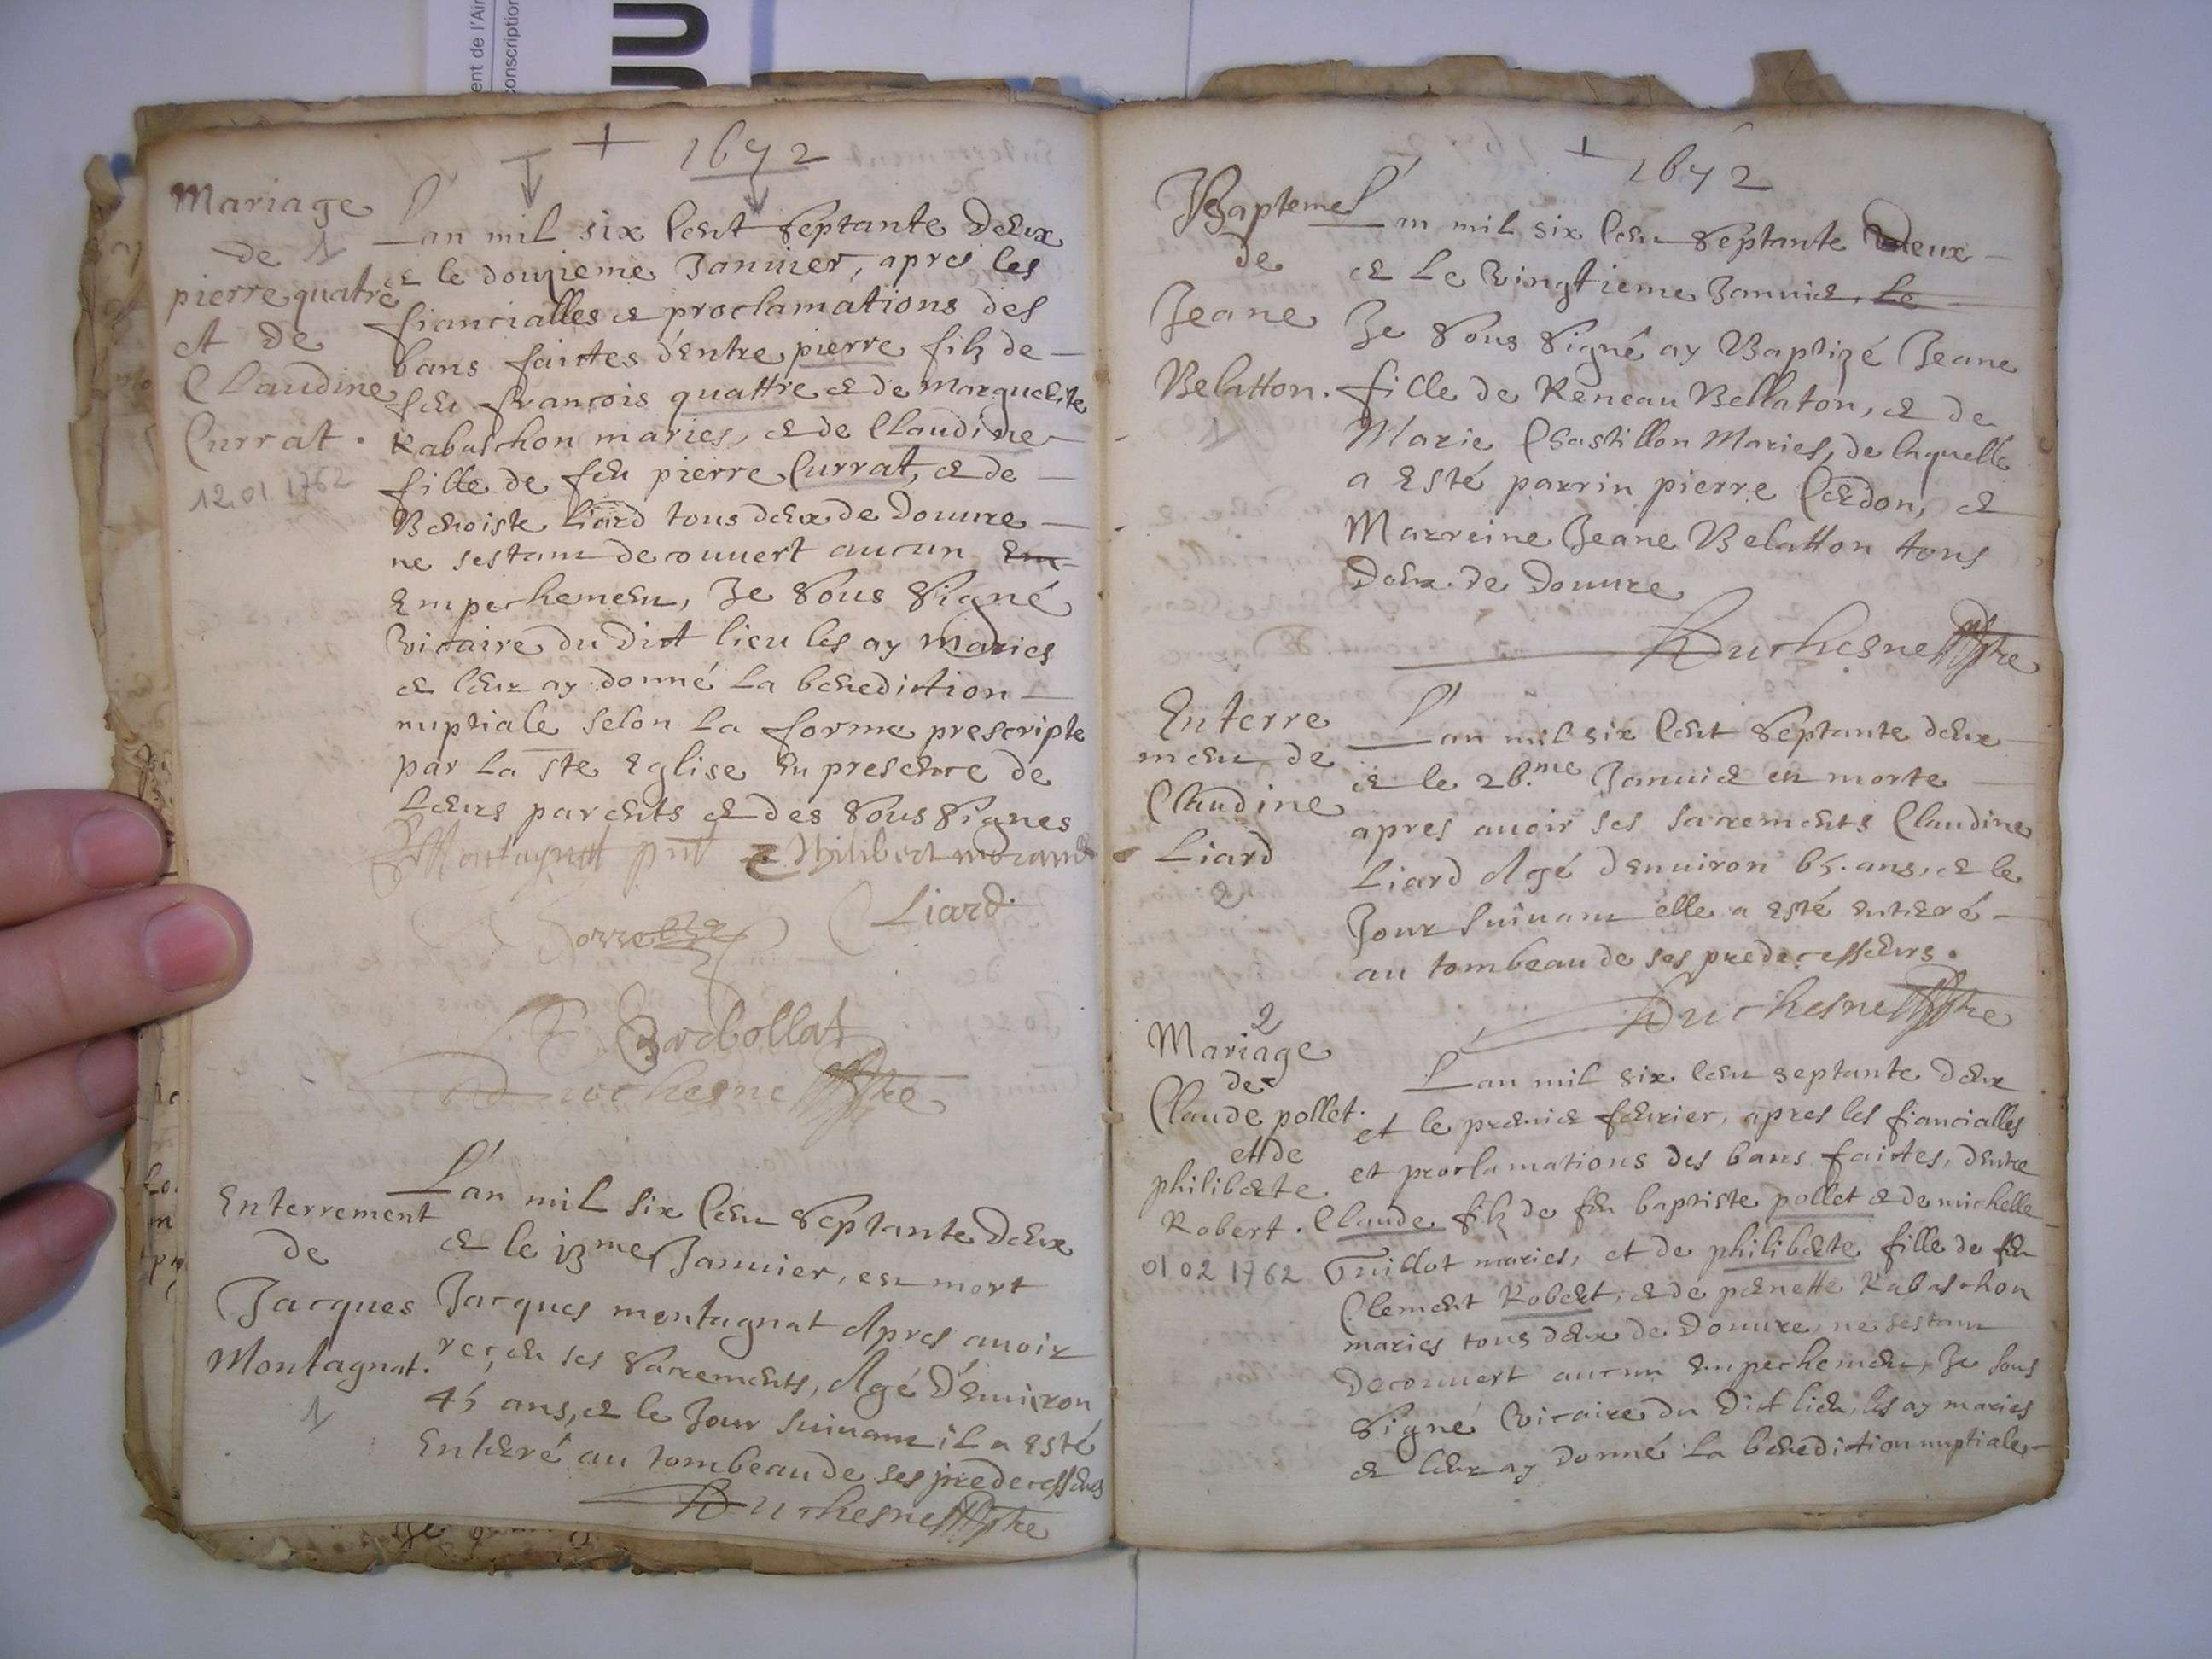 ent de l'Ain
conscription
UU
+ 1672
Mariage
de 1
pierre quatre
et de
Claudine
Currat.
12.01 1762
L'an mil six Cent Septante Deux
& le douzieme Januier, apres les
fiancialles & proclamations des
bans faictes d'entre pierre filz de
feu francois quattre & de marguerite
Rabaschon maries, & de Claudine
fille de feu pierre Currat, & de
Benoiste Liard tous deux de Douure
ne sestant decouuert aucun Em
Empechement, Je Sous Signé
Vicaire du dict lieu les ay maries
& leur ay donné La benediction
nuptiale selon La forme prescripte
par La Ste Eglise En presence de
Leurs parents & des Sous Signes
Montagnat pnt Philibert morand
Liard
Duchesne Pbre
Enterrement
de
Jacques
Montagnat.
1
L'an mil six Cent Septante Deux
& le 13me Januier, est mort
Jacques montagnat Apres auoir
reçeu ses Sacrements, Agé D'enuiron
45 ans, & le Jour Suiuant iL a Esté
Enterré au tombeau de ses predecesseurs
Duchesne Pbre
+ 1672
Bapteme
de
Jeane
Belatton.
1
L'an mil six Cent Septante Deux
& Le Vingtieme Januier, Le
Je Sous Signé ay Baptizé Jeane
fille de Reneau Bellaton, & de
Marie Chastillon Maries, de laquelle
a Esté parrin pierre Cerdon, &
Marreine Jeane Belatton tous
Deux de Douure
Duchesne Pbre
Enterre
ment de
Claudine
Liard
2
L'an mil six Cent Septante deux
& le 26.me Januier est morte
apres auoir ses sacrements Claudine
Liard Agé denuiron 65. ans, & le
Jour suiuant elle a esté enterré
au tombeau de ses predecesseurs.
Duchesne Pbre
2
Mariage
de
Claude pollet.
et de
philiberte
Robert.
01 02 1762
L'an mil six Cent septante deux
et le premier feurier, apres les fiancialles
et proclamations des bans faictes, dentre
Claude filz de feu baptiste pollet & de michelle
Guillot maries, et de philiberte fille de feu
Clement Robert, & de pernette Rabaschon
maries tous deux de Douure, ne sestant
Decouuert aucun Empechement, Je Sous
Signé Vicaire du Dict lieu, les ay maries
& leur ay Donné La benediction nuptiale